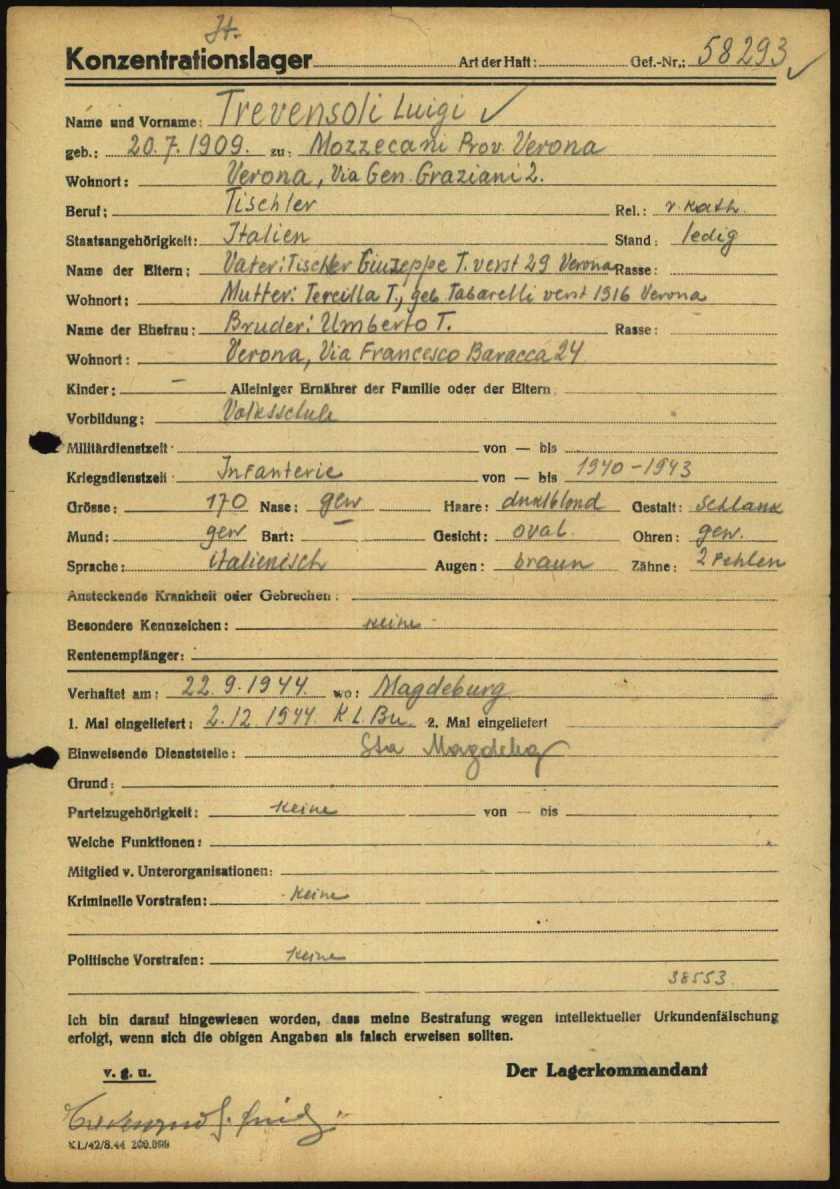 It.
Konzentrationslager Art der Haft: Gef.-Nr.: 58293
Name und Vorname: Trevensoli Luigi
geb.: 20.7.1909. zu: Mozzecani Prov. Verona
Wohnort: Verona, Via Gen. Graziani 2.
Beruf: Tischler Rel.: r. kath.
Staatsangehörigkeit: Italien Stand: ledig
Name der Eltern: Vater: Tischler Giuzeppe T. verst 29 Verona Rasse:
Wohnort: Mutter: Tercilla T., geb. Tabarelli verst 1916 Verona
Name der Ehefrau: Bruder: Umberto T. Rasse:
Wohnort: Verona, Via Francesco Baracca 24
Kinder: — Alleiniger Ernährer der Familie oder der Eltern:
Vorbildung: Volksschule
Militärdienstzeit: von — bis
Kriegsdienstzeit: Infanterie von — bis 1940-1943
Grösse: 170 Nase: gew Haare: dnklblond Gestalt: schlank
Mund: gew Bart: — Gesicht: oval. Ohren: gew.
Sprache: italienisch Augen: braun Zähne: 2 fehlen
Ansteckende Krankheit oder Gebrechen:
Besondere Kennzeichen: keine
Rentenempfänger:
Verhaftet am: 22.9.1944 wo: Magdeburg
1. Mal eingeliefert: 2.12.1944. KL.Bu. 2. Mal eingeliefert
Einweisende Dienststelle: Sta Magdebg
Grund:
Parteizugehörigkeit: keine von — bis
Welche Funktionen:
Mitglied v. Unterorganisationen:
Kriminelle Vorstrafen: keine
Politische Vorstrafen: keine
38553
Ich bin darauf hingewiesen worden, dass meine Bestrafung wegen intellektueller Urkundenfälschung
erfolgt, wenn sich die obigen Angaben als falsch erweisen sollten.
v. g. u. Der Lagerkommandant
KL/42/8.44 200.000